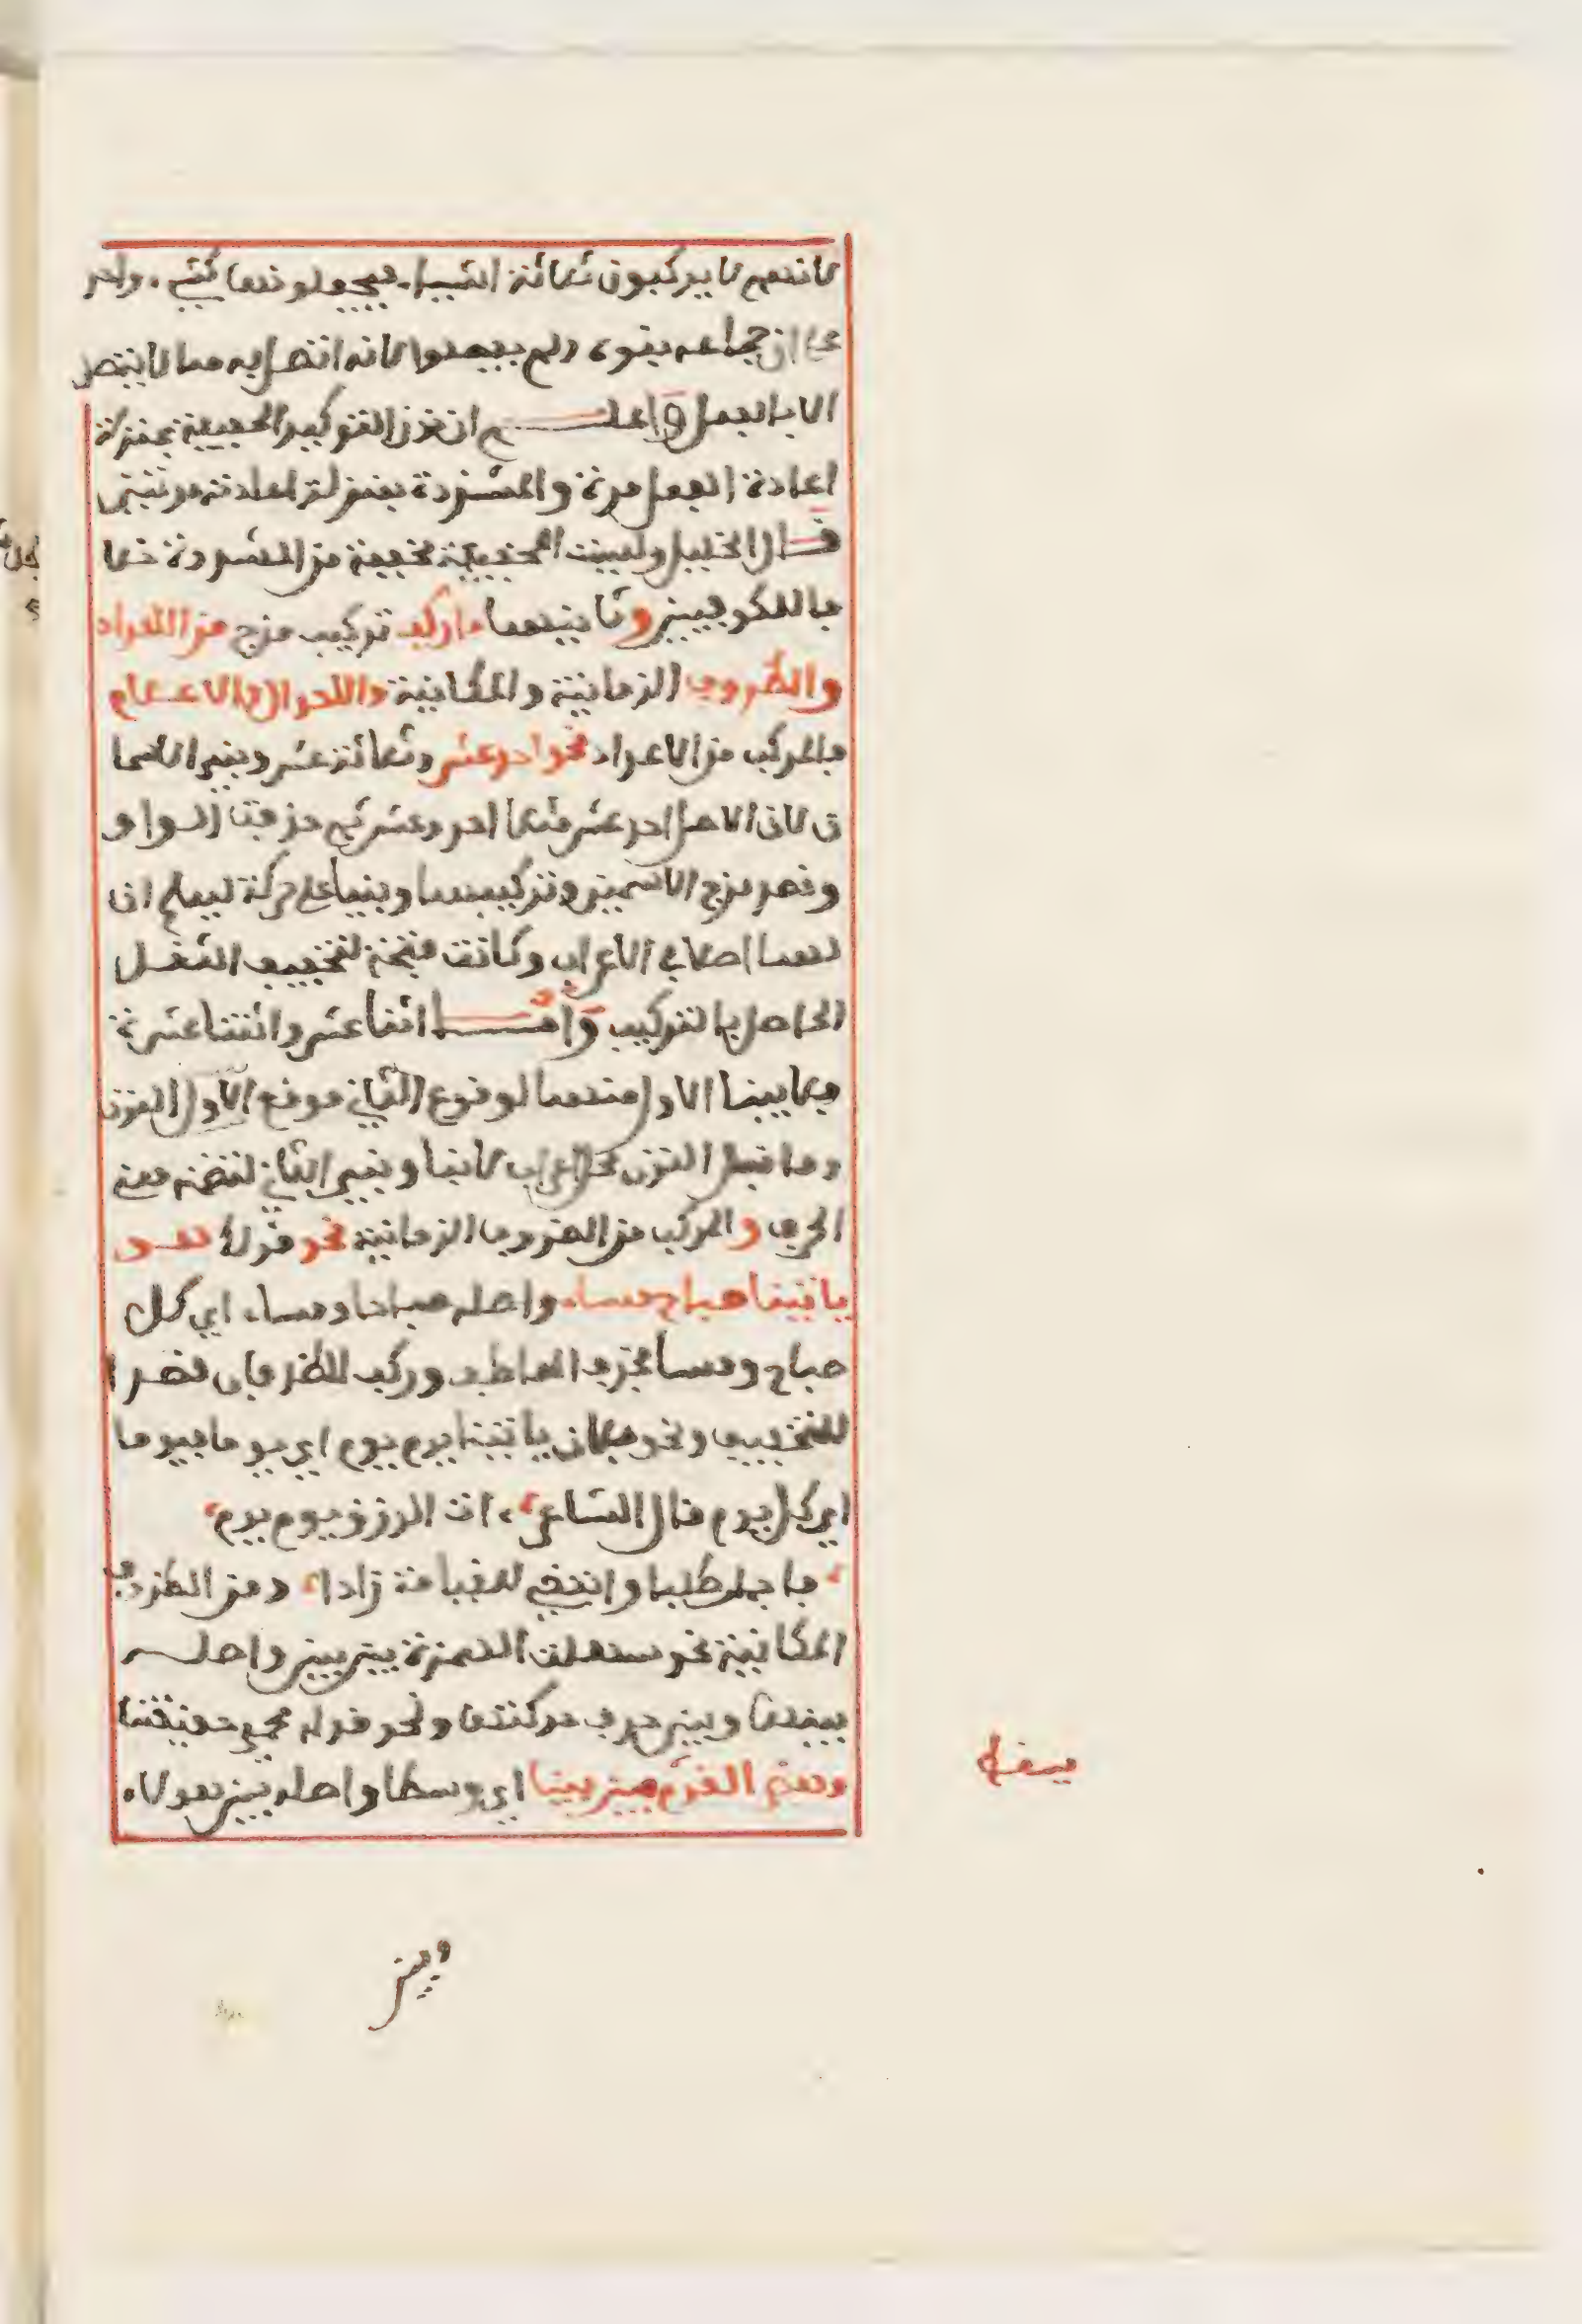 لانهم لا يركبون ثلاثة اشياء فيجعلونها كشيء واحد
على ان جماعة بنوه ولم يبعدوا لانه اتصل به مما لا ينفصل
الا بالفعل واعلم ان نون التوكيد الخفيفة بمنزلة
اعادة الفعل مرة والمشددة بمنزلة اعادته مرتين
قال الخليل وليست الخفيفة مخففة من المشددة خلافا
للكوفيين وثانيهما ما ركب تركيب مزج من الاعداد
والظروف الزمانية والمكانية والاحوال والاعلام
فالمركب من الاعداد نحو احد عشر وثلاثة عشر وبني الاسما
ن لان الاصل احد عشر مثلا احد وعشر ثم حذفت الواو
وقصد مزج الاسمين وتركيبهما وبنيا على حركة ليعلم ان
لهما اصلا في الاعراب وكانت فتحة لتخفيف الثقل
الحاصل بالتركيب واما اثنا عشر واثنتا عشرة
فلا يبنا الاول منهما لوقوع الثاني موقع الاول النون
وما قبل النون محل اعراب لا بنا وبني الثاني لتضمنه معنى
الحرف والمركب من الظروف الزمانية نحو قولك هو
ياتينا صباح مساء واصله صباحا ومساء اي كل
صباح ومسا فحذف العاطف وركب الظرفان قصدا
للتخفيف ونحو فلان ياتينا يوم يوم اي يوما فيوما
اي كل يوم قال الشاعر ، ات الرزق يوم يوم
، فاجمل طلبا وابتغ للقيامة زادا ، ومن الظروف
المكانية نحو سهلت الهمزة بين بين واصله
بينها وبين حرف حركتها ونحو قوله نحمي حقيقتنا
وبعض القوم بين بينا اي وسطا واصله بين هولاء
يسقط
وبين